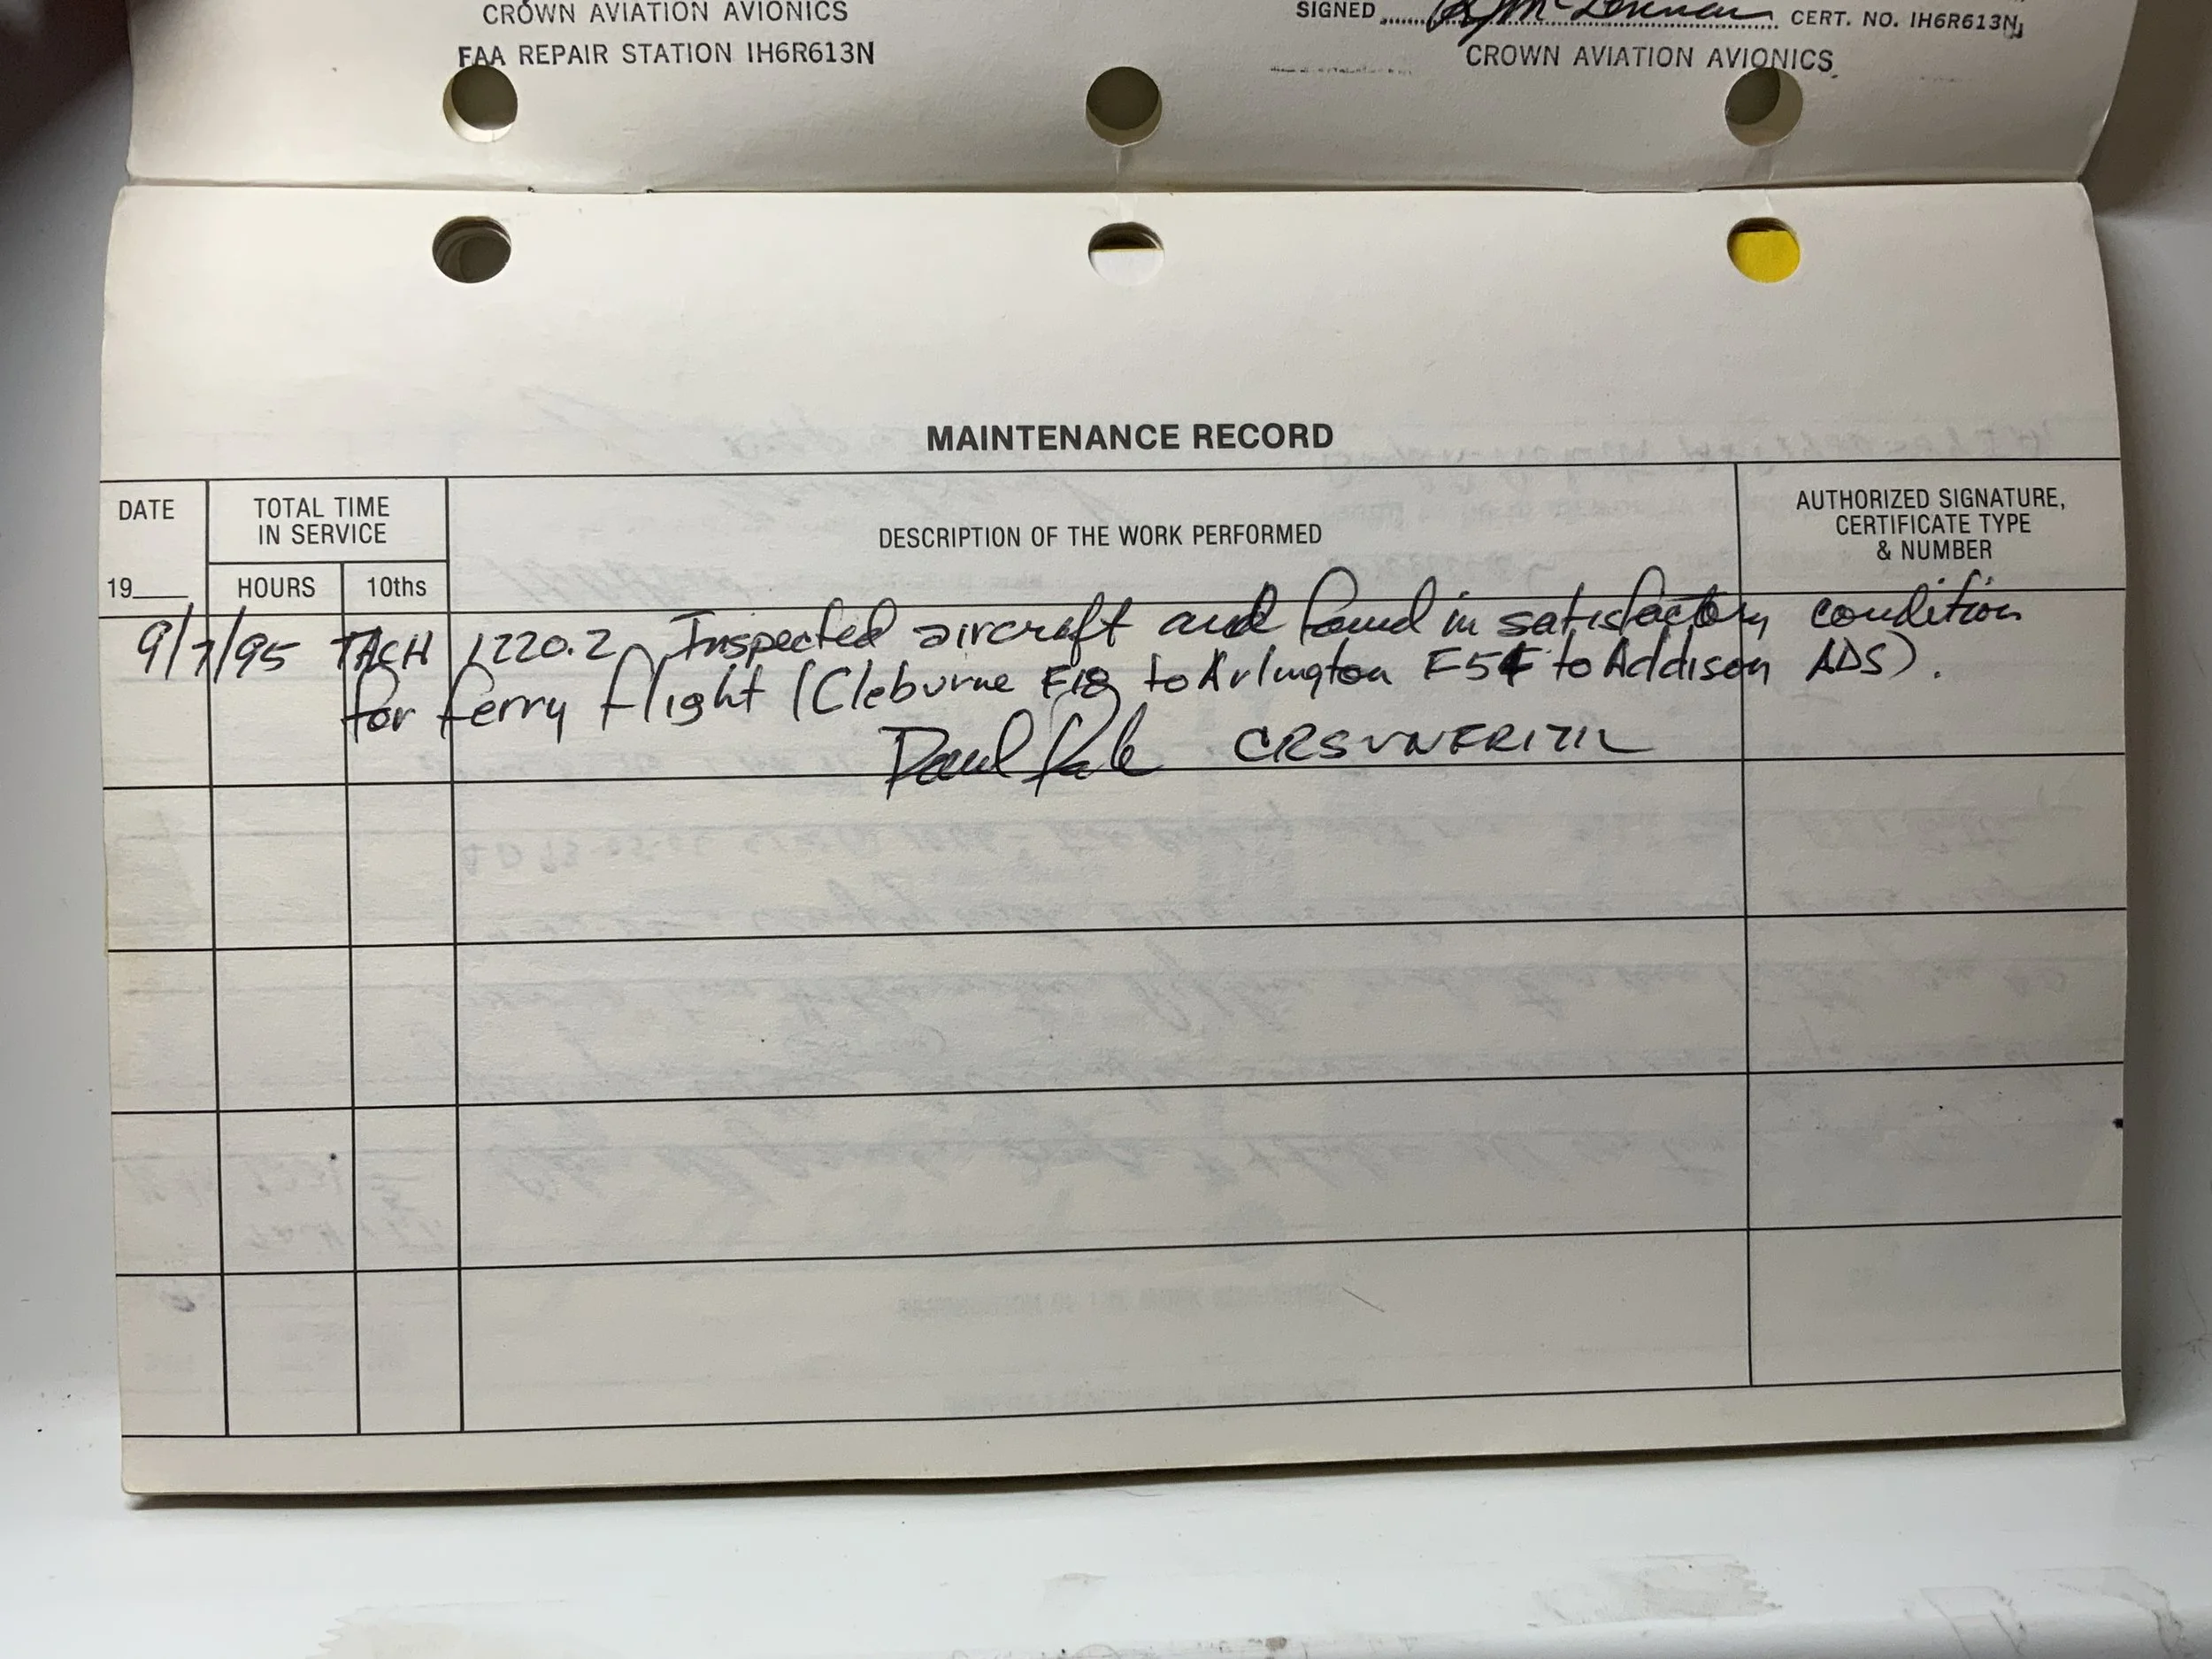 CROWN AVIATION AVIONICS
FAA REPAIR STATION IH6R613N
SIGNED CERT. NO. IH6R613N
CROWN AVIATION AVIONICS
MAINTENANCE RECORD
DATE
19
TOTAL TIME
IN SERVICE
HOURS
10ths
DESCRIPTION OF THE WORK PERFORMED
AUTHORIZED SIGNATURE,
CERTIFICATE TYPE
& NUMBER
9/7/95 TACH 1220.2 Inspected aircraft and found in satisfactory condition
for ferry flight (Cleburne F18 to Arlington to Addison ADS).